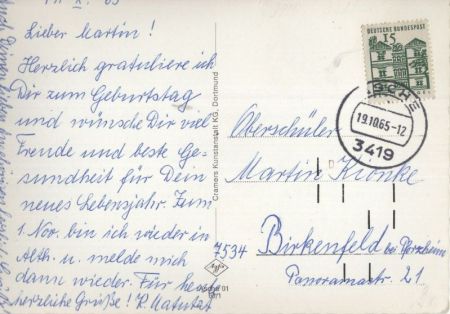 Lieber Martin!
Herzlich gratuliere ich
Dir zum Geburtstag
und wünsche Dir viel
Freude und beste Ge-
sundheit für Dein
neues Lebensjahr. Zum
1. Nov. bin ich wieder in
Alth. u. melde mich
dann wieder. Für heute
herzliche Grüße!
Cramers Kunstanstalt KG, Dortmund
DEUTSCHE BUNDESPOST
15
19.10.65-12
3419
Oberschüler
Martin Kronke
7534 Birkenfeld bei Pforzheim
Panoramastr. 21
Agfa